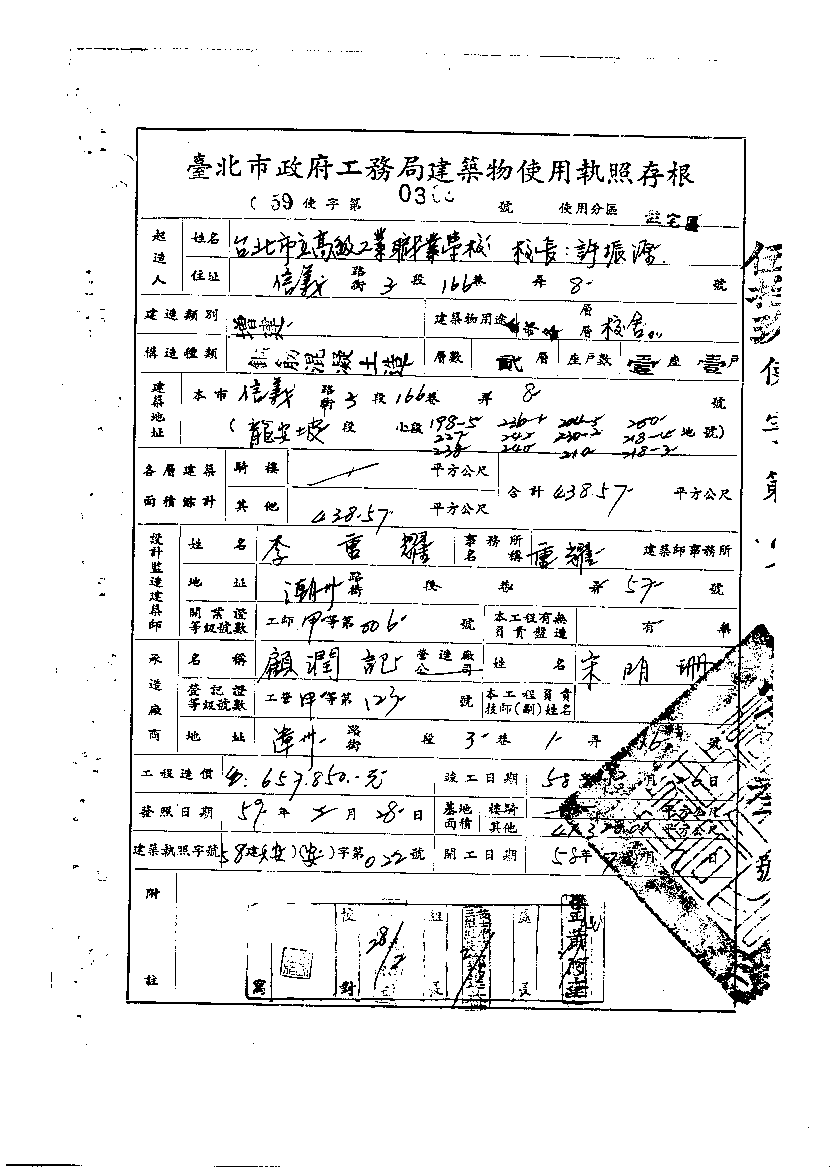 臺北市政府工務局建築物使用執照存根
(59 使字第 03 號 使用分區 住宅區
起造人 姓名 台北市立高級工業職業學校 校長:許振濂
住址 信義 路街 3 段 166 巷 弄 8 號
建造類別 增建 建築物用途 層層 校舍
構造種類 鋼筋混凝土造 層數 貳 層 座戶數 壹 座 壹 戶
建築地址 本市 信義 路街 3 段 166 巷 弄 8 號
(龍安坡 段 小段 198-5 236-1 204-5 250
227 242 230-2 218-4 地號)
238 240 210 218-2
各層建築面積綜計 騎樓 平方公尺
其他 438.57 平方公尺 合計 438.57 平方公尺
設計監造建築師 姓名 李重耀 事務所名稱 重耀 建築師事務所
地址 潮州 路街 段 巷 弄 57 號
開業證等級號數 工師 甲 等第 006 號 本工程有無負責監造 有 無
承造廠商 名稱 顧潤記 營造廠公司 姓名 宋明珊
登記證等級號數 工營 甲 等第 123 號 本工程負責技師(副)姓名
地址 漳州 路街 段 3 巷 1 弄 16 號
工程造價 657.850.-元 竣工日期 58 年 月 26 日
發照日期 59 年 2 月 28 日 基地面積 樓騎 平方公尺
其他 平方公尺
建築執照字號 58 建(大安)(安)字第 022 號 開工日期 58 年 月 日
附註
寫 校對 28/2 組長 處長
使字第 號